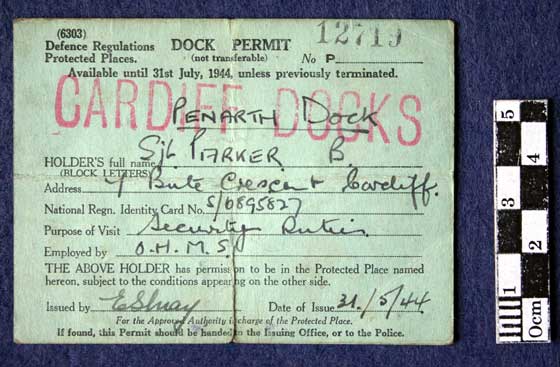 (6303)
Defence Regulations
Protected Places.
DOCK PERMIT
(not transferable)
12719
No P
Available until 31st July, 1944, unless previously terminated.
CARDIFF DOCKS
PENARTH DOCK
HOLDER'S full name Sjt PARKER B.
(BLOCK LETTERS)
Address Bute Crescent Cardiff.
National Regn. Identity Card No. S/6895827
Purpose of Visit Security Duties
Employed by O.H.M.S.
THE ABOVE HOLDER has permission to be in the Protected Place named
hereon, subject to the conditions appearing on the other side.
Issued by Date of Issue 31/5/44
For the Approved Authority in charge of the Protected Place.
If found, this Permit should be handed to the Issuing Office, or to the Police.
5
4
3
2
1
0cm